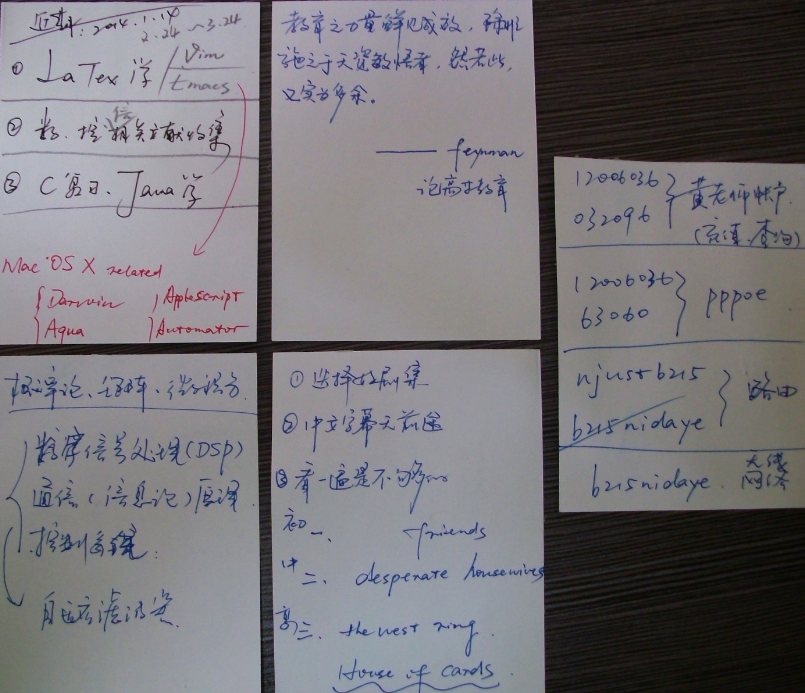 近期:2014.1.14
2.24 ~3.24
① LaTex 学 / Vim
Emacs
② 数、控 信 相关文献收集
③ C复习、Java学
Mac OS X related
Darwin Applescript
Aqua Automator
教育之力量鲜见成效，除非
施之于天资敏悟者，然若此，
又实为多余。
—— feynman
论高等教育
12006036
032096
黄老师帐户
(充值、查询)
12006036
63060
pppoe
njustb215
b215nidaye
路由
b215nidaye 无线
网络
概率论、矩阵、微积分
数字信号处理(DSP)
通信(信息论)原理
控制
自适应滤波
① 选择好剧集
② 中文字幕无前途
③ 看一遍是不够
初 一、 friends
中 二、 desperate housewives
高 三、 the west
House of cards